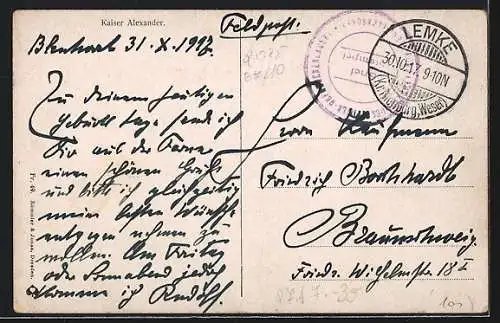 Kaiser Alexander.
Feldpost.
31.X.1917.
LEMKE
30.10.17. 9-10N
(Kr. Nienburg, Weser)
Zu deinem heutigen
Geburtstage send ich
Dir aus der Ferne
einen schönen Gruß
und bitte ich gleichzeitig
meine besten Wünsche
entgegen nehmen zu
wollen. Am Freitag
oder Sonnabend jedoch
komme ich Rudolf.
Herrn Kaufmann
Friedrich Borchhardt
Braunschweig.
Friedr. Wilhelmstr. 18 I
Fr. 49. Rommler & Jonas, Dresden.